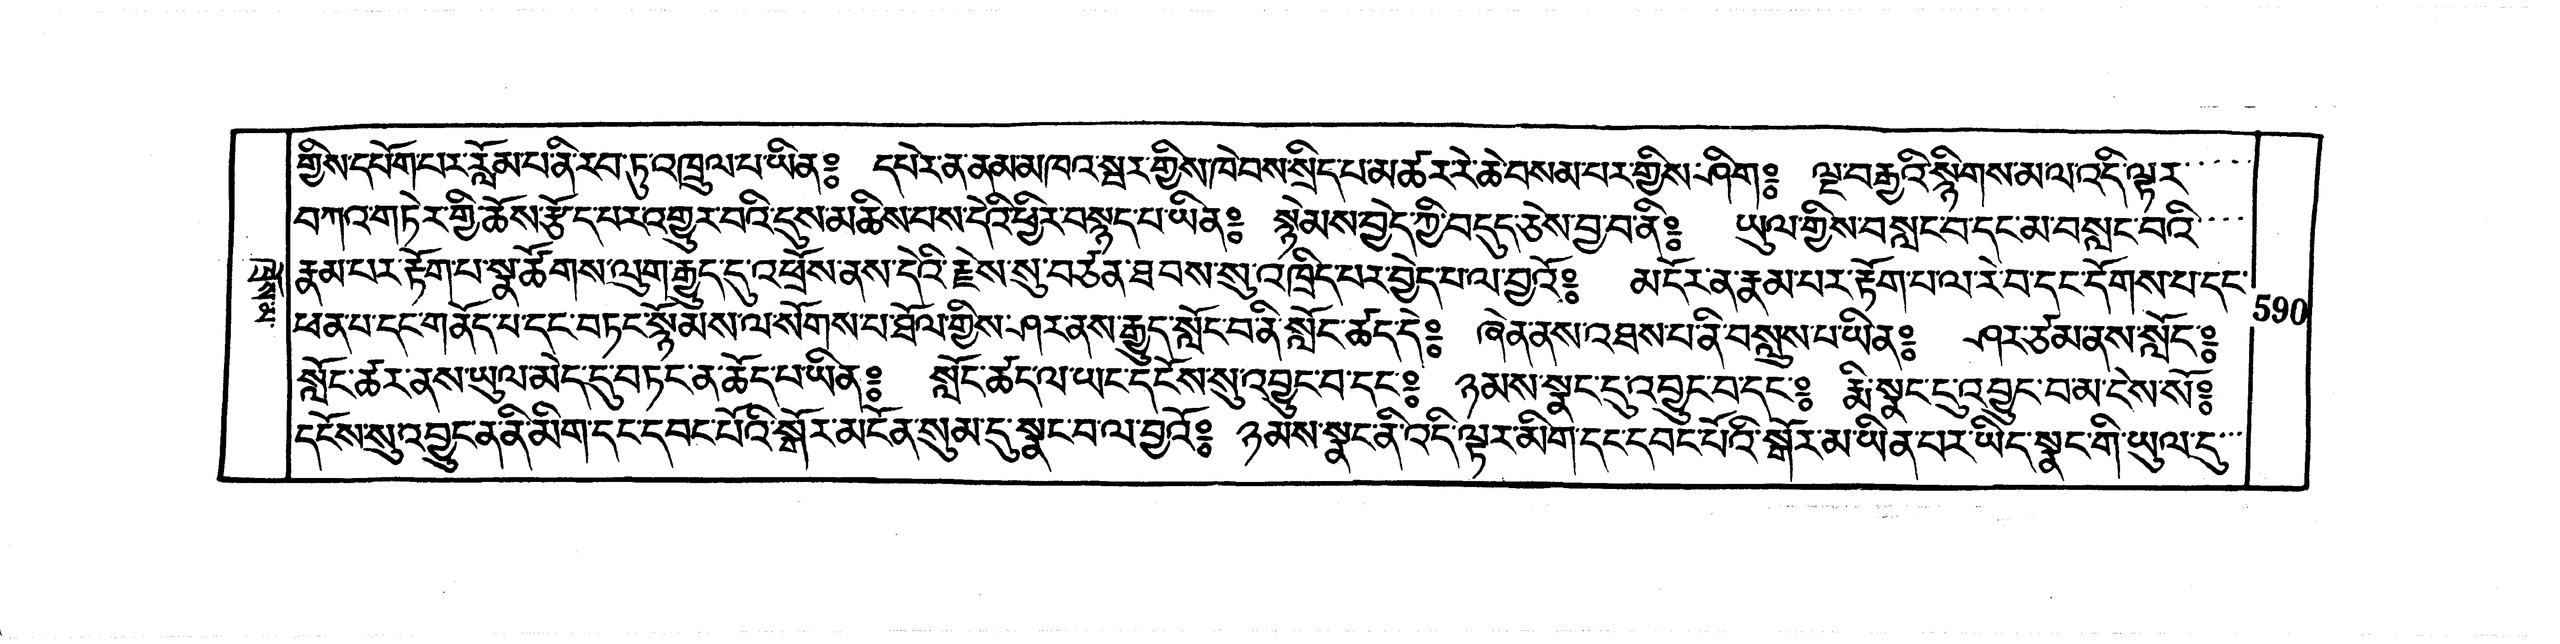 གྱིས་དཔོག་པར་རློམ་པ་ནི་རབ་ཏུ་འཁྲུལ་པ་ཡིན༔ དཔེར་ན་ནམ་མཁའ་སྦར་གྱིས་ཁེབས་སྲིད་པ་མ་ཚར་རེ་ཆེ་བསམ་པར་གྱིས་ཤིག༔ ལྔ་བརྒྱའི་སྙིགས་མ་ལ་འདི་ལྟར་
བཀའ་གཏེར་གྱི་ཆོས་རྩོད་པར་འགྱུར་བའི་དུས་མཆིས་པས་དེའི་ཕྱིར་བསྟན་པ་ཡིན༔ སྙེམས་བྱེད་ཀྱི་བདུད་ཅེས་བྱ་བ་ནི༔ ཡུལ་གྱིས་བསླང་བ་དང་མ་བསླང་བའི་
རྣམ་པར་རྟོག་པ་སྣ་ཚོགས་ལུག་རྒྱུད་དུ་འཕྲོས་ནས་དེའི་རྗེས་སུ་བཙན་ཐབས་སུ་འཁྲིད་པར་བྱེད་པ་ལ་བྱའོ༔ མདོར་ན་རྣམ་པར་རྟོག་པ་ལ་རེ་བ་དང་དོགས་པ་དང་
ཕན་པ་དང་གནོད་པ་དང་བཏང་སྙོམས་ལ་སོགས་པ་ཐོལ་གྱིས་ཤར་ནས་རྒྱུད་སློང་བ་ནི་སློང་ཚད་དེ༔ ཞེན་ནས་འཐས་པ་ནི་བསླུས་པ་ཡིན༔ ཤར་ཙམ་ནས་སློང༔
སློང་ཚར་ནས་ཡུལ་མེད་དུ་བཏང་ན་ཆོད་པ་ཡིན༔ སློང་ཚད་ལ་ཡང་དངོས་སུ་འབྱུང་བ་དང༔ ཉམས་སྣང་དུ་འབྱུང་བ་དང༔ རྨི་སྣང་དུ་འབྱུང་བ་མ་ངེས་སོ༔
དངོས་སུ་འབྱུང་ན་ནི་མིག་དང་དབང་པོའི་སྒོར་མངོན་སུམ་དུ་སྣང་བ་ལ་བྱའོ༔ ཉམས་སྣང་ནི་འདི་ལྟར་མིག་དང་དབང་པོའི་སྒོར་མ་ཡིན་པར་ཡིད་སྣང་གི་ཡུལ་དུ་
590